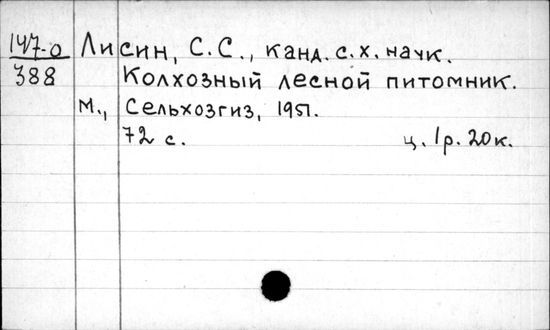 147-0 Лисин, С.С., канд. с.х. наук.
388 Колхозный лесной питомник.
М., Сельхозгиз, 1951.
72 с. ц. 1р. 20к.